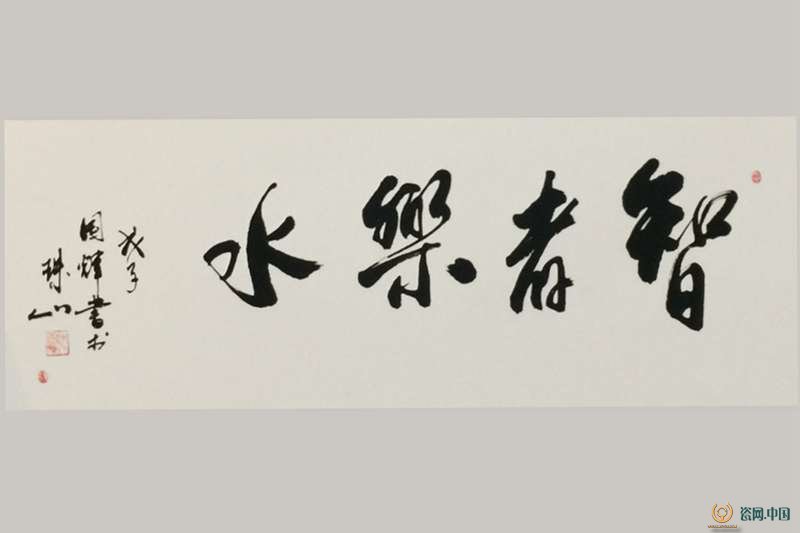 智者樂水
戊子
國輝書於
珠山
瓷网.中国